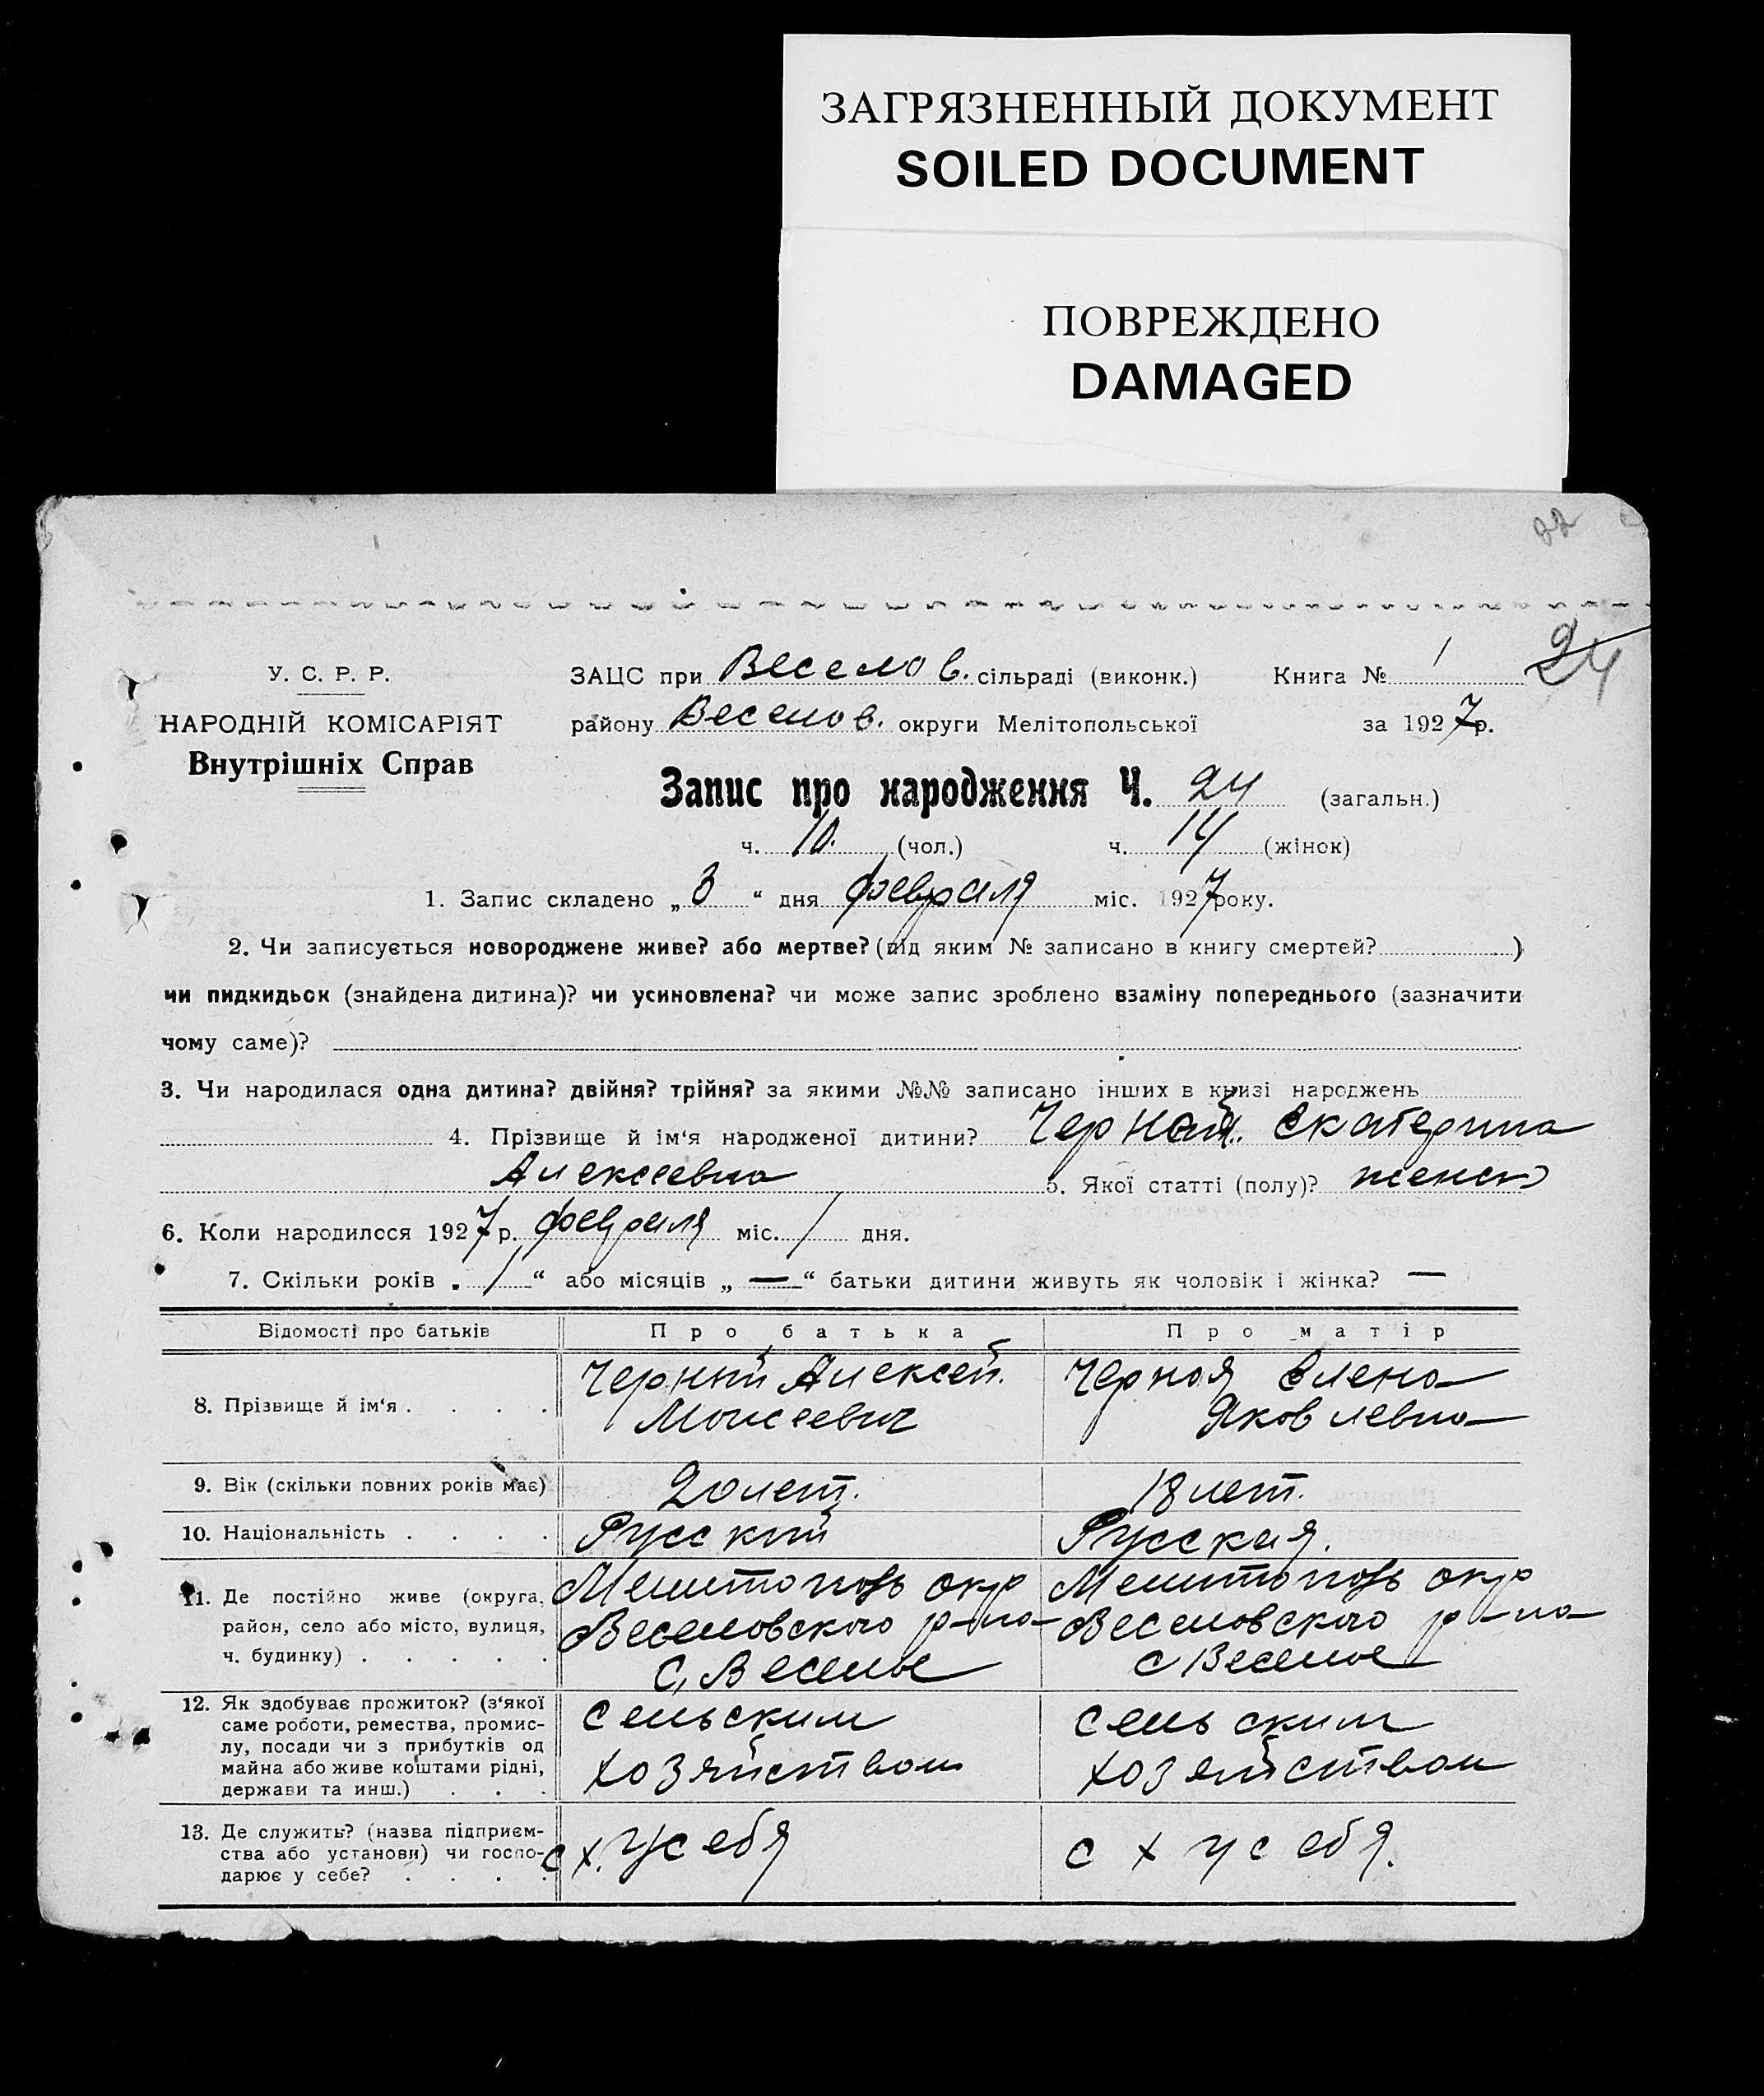 ЗАГРЯЗНЕННЫЙ ДОКУМЕНТ
SOILED DOCUMENT
ПОВРЕЖДЕНО
DAMAGED
22
24
У. С. Р. Р.
НАРОДНІЙ КОМІСАРІЯТ
Внутрішніх Справ
ЗАЦС при Веселов. сільраді (виконк.) Книга № 1
району Веселов. округи Мелітопольської за 1927 р.
Запис про народження Ч. 24 (загальн.)
ч. 10. (чол.) ч. 14 (жінок)
1. Запис складено „ 3 “ дня февраля міс. 1927 року.
2. Чи записується новороджене живе? або мертве? (під яким № записано в книгу смертей? )
чи пидкидьок (знайдена дитина)? чи усиновлена? чи може запис зроблено взаміну попереднього (зазначити
чому саме)?
3. Чи народилася одна дитина? двійня? трійня? за якими №№ записано інших в книзі народжень
4. Прізвище й ім‘я народженої дитини? Черная Екатерина
Алексеевна 5. Якої статті (полу)? женск
6. Коли народилося 1927 р. февраля міс. 1 дня.
7. Скільки років „ 1 “ або місяців „ — “ батьки дитини живуть як чоловік і жінка? —
Відомості про батьків Про батька Про матір
8. Прізвище й ім‘я . . . .
Черный Алексей.
Моисеевич
Черная Елена
Яковлевна
9. Вік (скільки повних років має) 20 лет. 18 лет.
10. Національність . . . . Русский Русская.
11. Де постійно живе (округа,
район, село або місто, вулиця,
ч. будинку) . . . . .
Мелитополь окр
Веселовского р-на
с. Веселое
Мелитополь окр
Веселовского р-на
с Веселое
12. Як здобуває прожиток? (з‘якої
саме роботи, ремества, промис-
лу, посади чи з прибутків од
майна або живе коштами рідні,
держави та инш.) . . .
Сельским
хозяйством
Сельским
хозяйством
13. Де служить? (назва підприєм-
ства або установи) чи госпо-
дарює у себе? . . . .
с х. у себя
с х у себя.